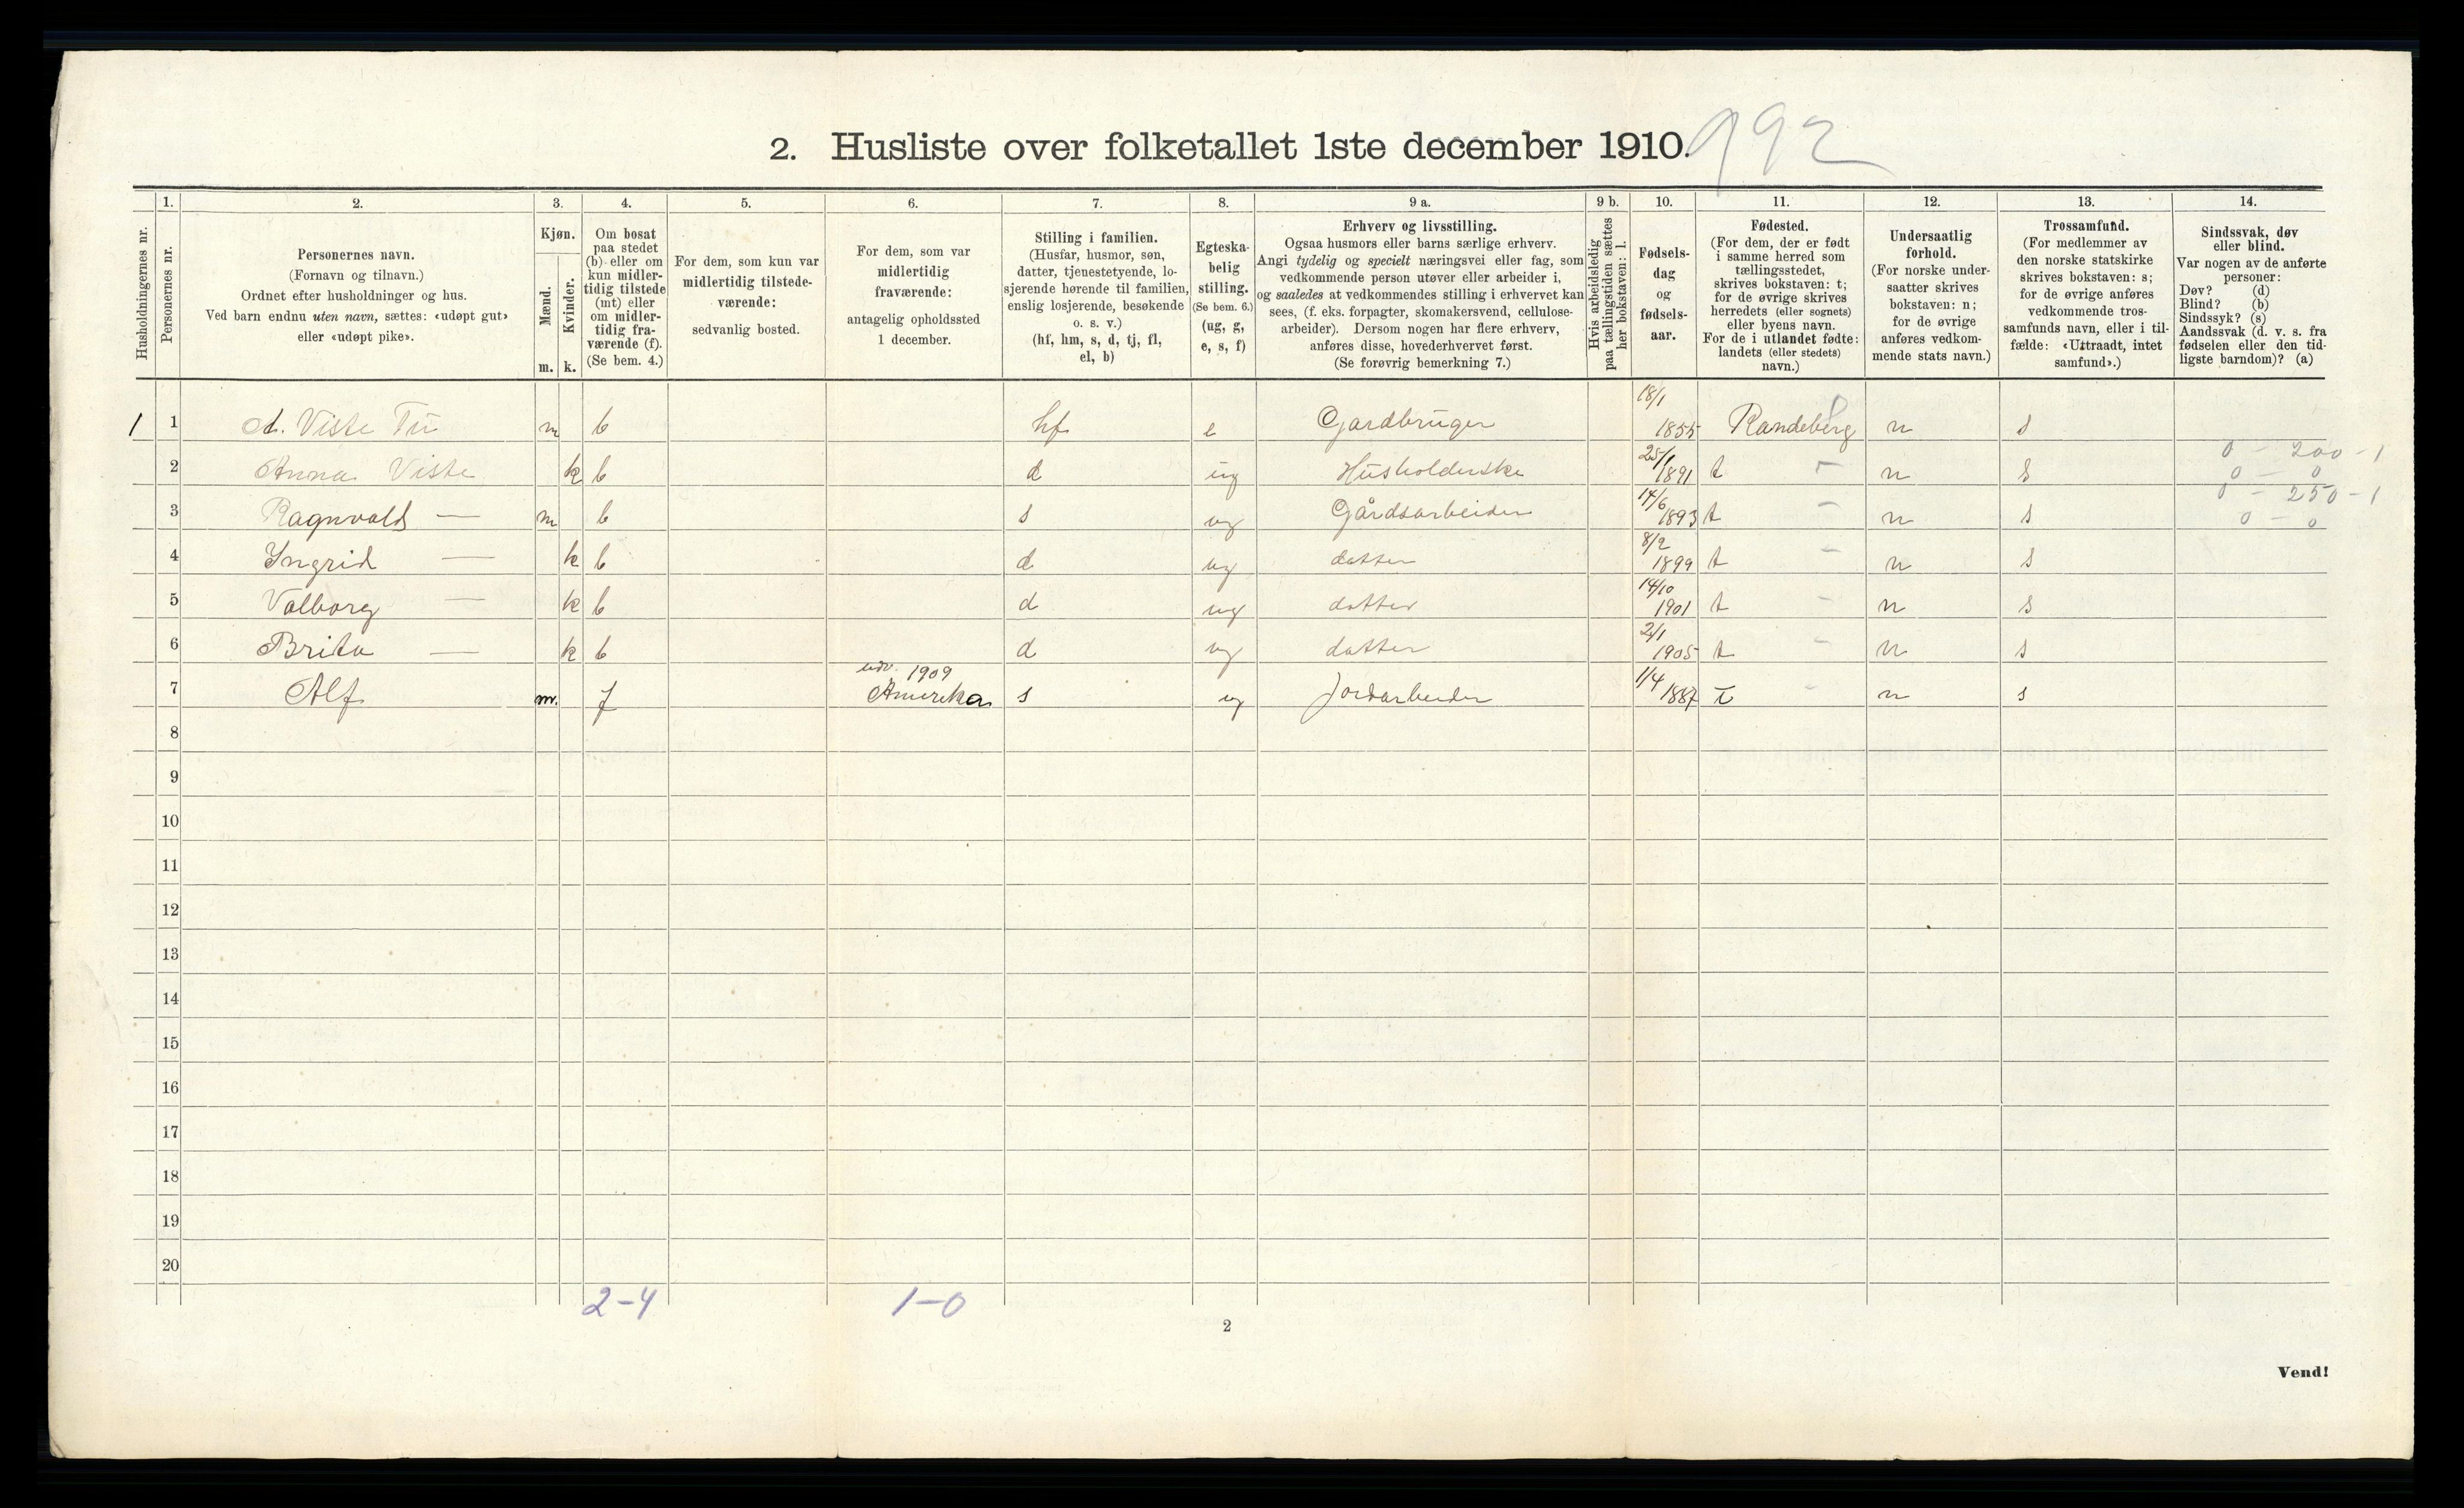 2. Husliste over folketallet 1ste december 1910.
992
Husholdningernes nr.
1.
Personernes nr.
2.
Personernes navn.
(Fornavn og tilnavn.)
Ordnet efter husholdninger og hus.
Ved barn endnu uten navn, sættes: «udøpt gut»
eller «udøpt pike».
3.
Kjøn.
Mænd.
Kvinder.
m. k.
4.
Om bosat
paa stedet
(b) eller om
kun midler-
tidig tilstede
(mt) eller
om midler-
tidig fra-
værende (f).
(Se bem. 4.)
5.
For dem, som kun var
midlertidig tilstede-
værende:
sedvanlig bosted.
6.
For dem, som var
midlertidig
fraværende:
antagelig opholdssted
1 december.
7.
Stilling i familien.
(Husfar, husmor, søn,
datter, tjenestetyende, lo-
sjerende hørende til familien,
enslig losjerende, besøkende
o. s. v.)
(hf, hm, s, d, tj, fl,
el, b)
8.
Egteska-
belig
stilling.
(Se bem. 6.)
(ug, g,
e, s, f)
9 a.
Erhverv og livsstilling.
Ogsaa husmors eller barns særlige erhverv.
Angi tydelig og specielt næringsvei eller fag, som
vedkommende person utøver eller arbeider i,
og saaledes at vedkommendes stilling i erhvervet kan
sees, (f. eks. forpagter, skomakersvend, cellulose-
arbeider). Dersom nogen har flere erhverv,
anføres disse, hovederhvervet først.
(Se forøvrig bemerkning 7.)
9 b.
Hvis arbeidsledig
paa tællingstiden sættes
her bokstaven: l.
10.
Fødsels-
dag
og
fødsels-
aar.
11.
Fødested.
(For dem, der er født
i samme herred som
tællingsstedet,
skrives bokstaven: t;
for de øvrige skrives
herredets (eller sognets)
eller byens navn.
For de i utlandet fødte:
landets (eller stedets)
navn.)
12.
Undersaatlig
forhold.
(For norske under-
saatter skrives
bokstaven: n;
for de øvrige
anføres vedkom-
mende stats navn.)
13.
Trossamfund.
(For medlemmer av
den norske statskirke
skrives bokstaven: s;
for de øvrige anføres
vedkommende tros-
samfunds navn, eller i til-
fælde: «Uttraadt, intet
samfund».)
14.
Sindssvak, døv
eller blind.
Var nogen av de anførte
personer:
Døv? (d)
Blind? (b)
Sindssyk? (s)
Aandssvak (d. v. s. fra
fødselen eller den tid-
ligste barndom)? (a)
1 1 A. Viste Tu m b hf e Gardbruger 18/1 1855 Randeberg n s
0 - 200 - 1
2 Anna Viste k b d ug Husholderske 25/1 1891 t - n s 0 - 0
0 - 250 - 1
3 Ragnvald — m b s ug Gårdsarbeider 14/6 1893 t - n s 0 - 0
4 Yngrid — k b d ug datter 8/2 1899 t - n s
5 Valborg — k b d ug datter 14/10 1901 t - n s
6 Brita — k b d ug datter 2/1 1905 t - n s
7 Alf m. f udv. 1909 Amerika s ug Jordarbeider 1/4 1887 t - n s
8
9
10
11
12
13
14
15
16
17
18
19
20
2-4 1-0
2
Vend!